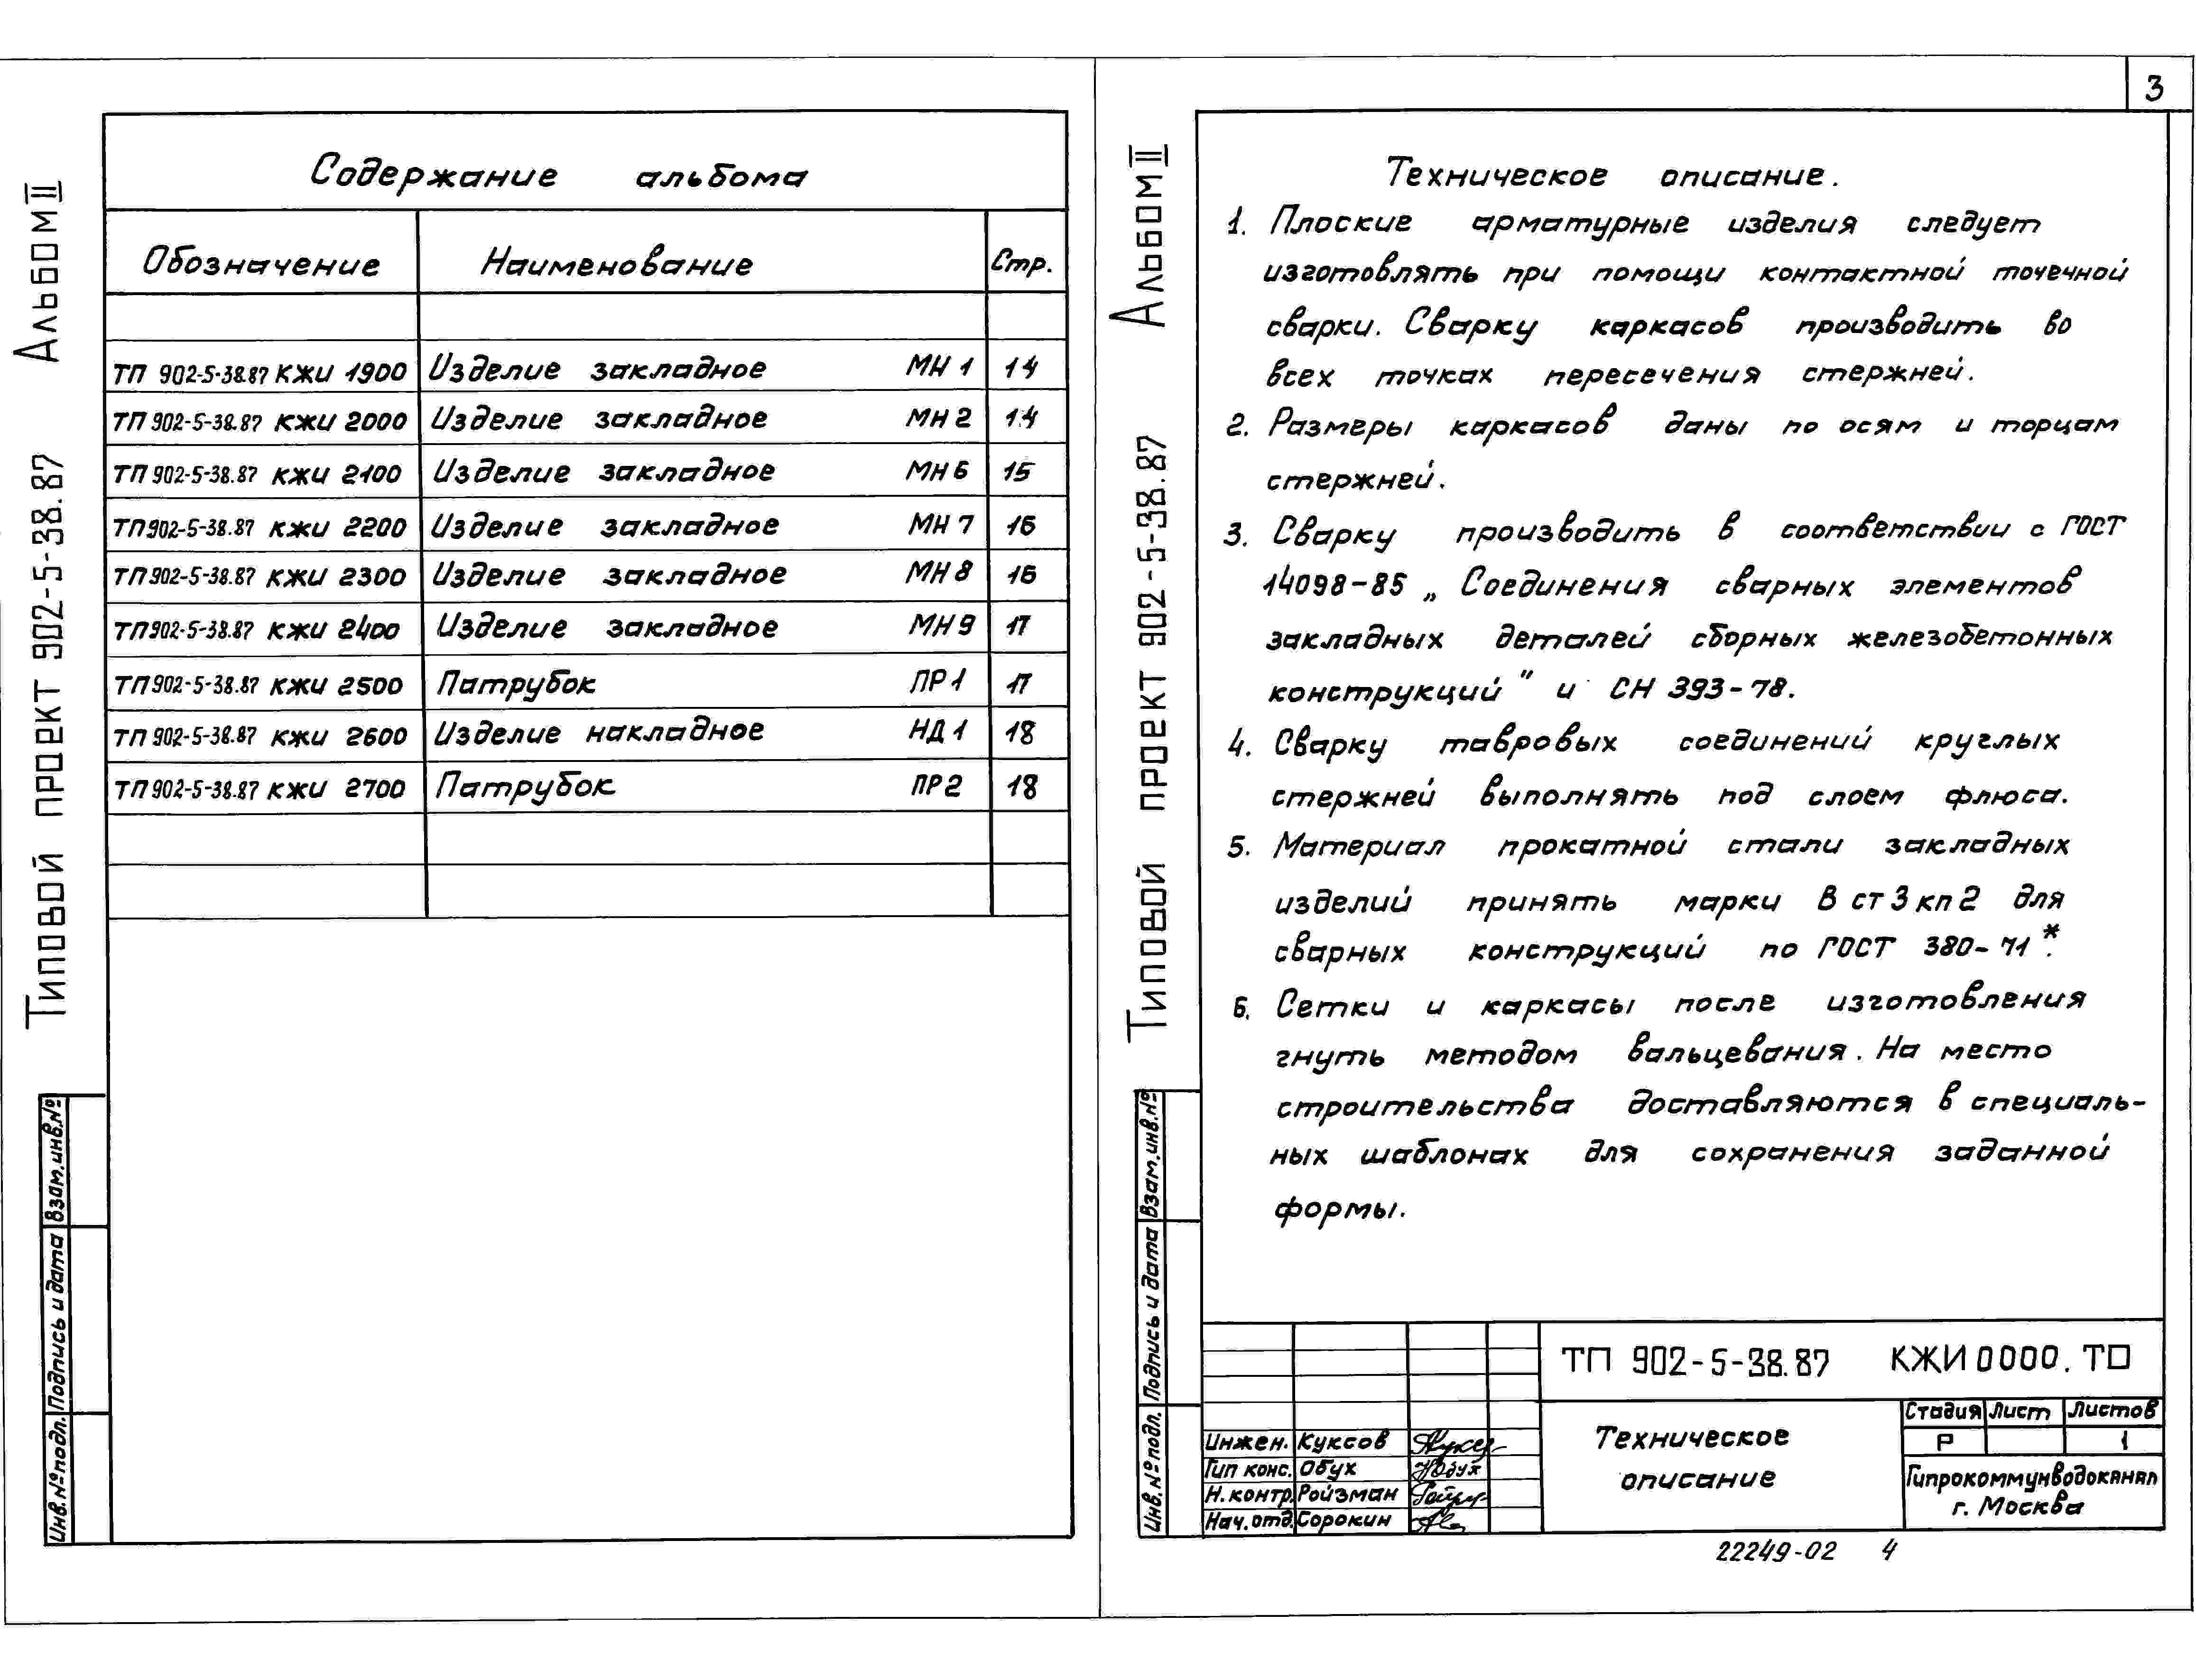 Альбом II
Типовой проект 902-5-38.87
Взам.инв.№
Подпись и дата
Инв.№ подл.
Содержание альбома
Обозначение Наименование Стр.
ТП 902-5-38.87 КЖИ 1900 Изделие закладное МН 1 14
ТП 902-5-38.87 КЖИ 2000 Изделие закладное МН 2 14
ТП 902-5-38.87 КЖИ 2100 Изделие закладное МН 6 15
ТП 902-5-38.87 КЖИ 2200 Изделие закладное МН 7 16
ТП 902-5-38.87 КЖИ 2300 Изделие закладное МН 8 16
ТП 902-5-38.87 КЖИ 2400 Изделие закладное МН 9 17
ТП 902-5-38.87 КЖИ 2500 Патрубок ПР 1 17
ТП 902-5-38.87 КЖИ 2600 Изделие накладное НД 1 18
ТП 902-5-38.87 КЖИ 2700 Патрубок ПР 2 18
3
Альбом II
Типовой проект 902-5-38.87
Взам.инв.№
Подпись и дата
Инв.№ подл.
Техническое описание.
1. Плоские арматурные изделия следует
изготовлять при помощи контактной точечной
сварки. Сварку каркасов производить во
всех точках пересечения стержней.
2. Размеры каркасов даны по осям и торцам
стержней.
3. Сварку производить в соответствии с ГОСТ
14098-85 „Соединения сварных элементов
закладных деталей сборных железобетонных
конструкций" и СН 393-78.
4. Сварку тавровых соединений круглых
стержней выполнять под слоем флюса.
5. Материал прокатной стали закладных
изделий принять марки В ст 3 кп 2 для
сварных конструкций по ГОСТ 380-71*.
6. Сетки и каркасы после изготовления
гнуть методом вальцевания. На место
строительства доставляются в специаль-
ных шаблонах для сохранения заданной
формы.
ТП 902-5-38.87 КЖИ 0000. ТО
Инжен. Куксов
Гип конс. Обух
Н. контр. Ройзман
Нач. отд. Сорокин
Техническое
описание
Стадия Лист Листов
Р 1
Гипрокоммунводоканал
г. Москва
22249-02 4